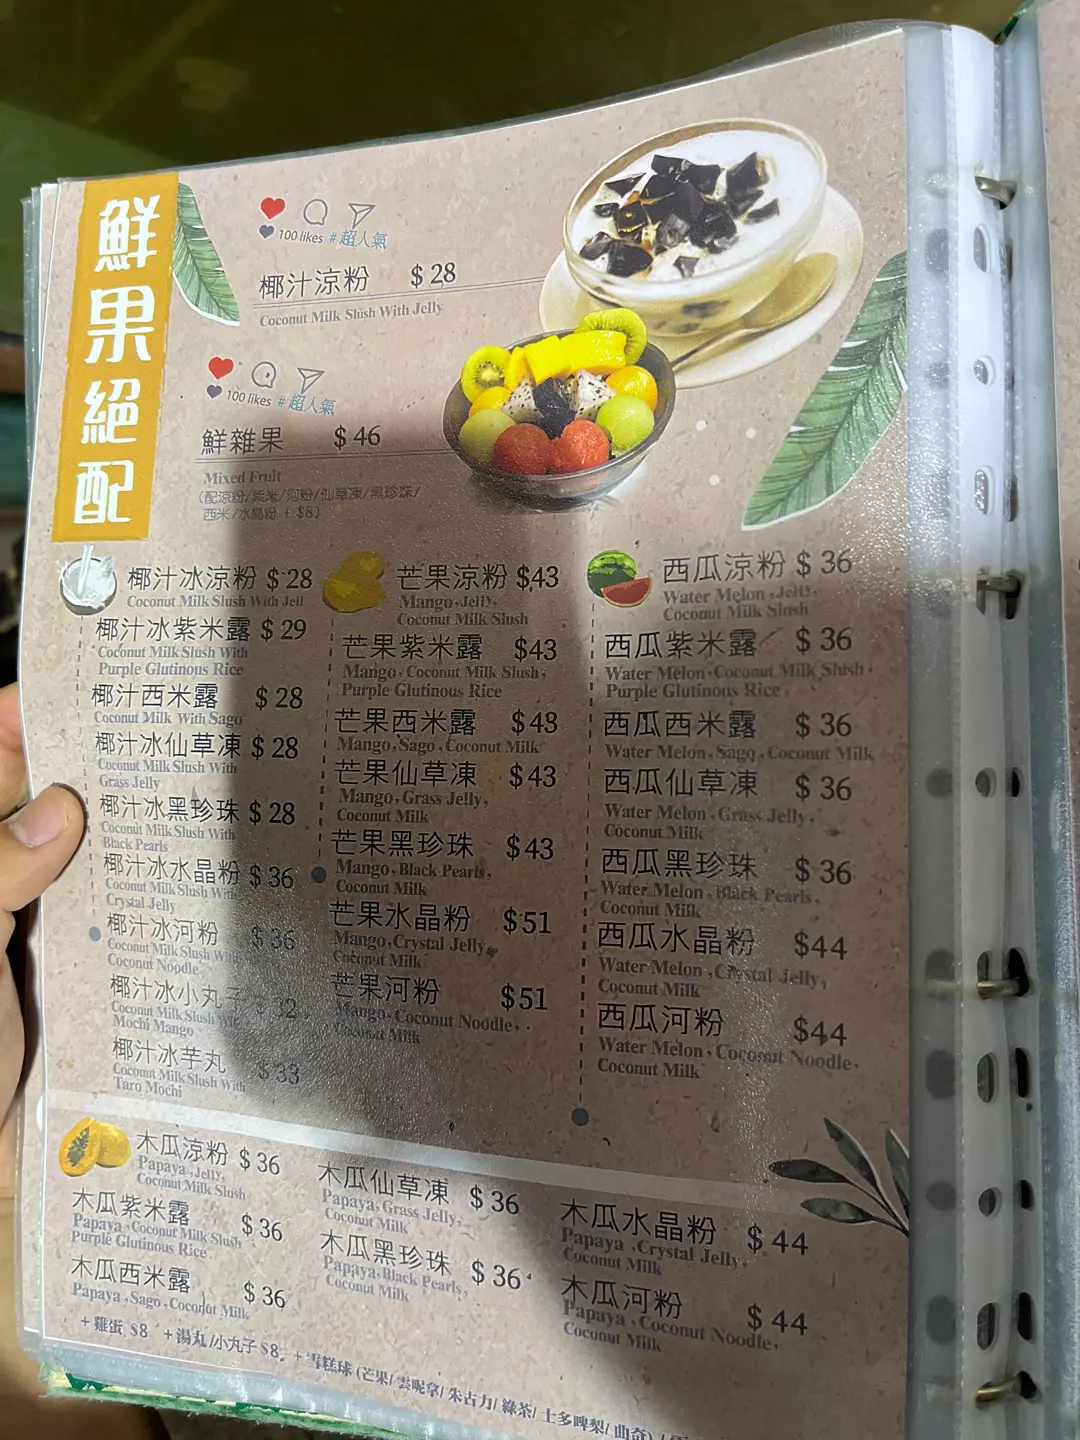 鮮果絕配
100 likes #超人氣
椰汁涼粉 $28
Coconut Milk Slush With Jelly
100 likes #超人氣
鮮雜果 $46
Mixed Fruit
(配涼粉/紫米/河粉/仙草凍/黑珍珠/
西米/水晶粉 + $8)
椰汁冰涼粉 $28
Coconut Milk Slush With Jell
椰汁冰紫米露 $29
Coconut Milk Slush With
Purple Glutinous Rice
椰汁西米露 $28
Coconut Milk With Sago
椰汁冰仙草凍 $28
Coconut Milk Slush With
Grass Jelly
椰汁冰黑珍珠 $28
Coconut Milk Slush With
Black Pearls
椰汁冰水晶粉 $36
Coconut Milk Slush With
Crystal Jelly
椰汁冰河粉 $36
Coconut Milk Slush With
Coconut Noodle
椰汁冰小丸子 $32
Coconut Milk Slush With
Mochi Mango
椰汁冰芋丸 $33
Coconut Milk Slush With
Taro Mochi
芒果涼粉 $43
Mango,Jelly,
Coconut Milk Slush
芒果紫米露 $43
Mango,Coconut Milk Slush,
Purple Glutinous Rice
芒果西米露 $43
Mango,Sago,Coconut Milk
芒果仙草凍 $43
Mango,Grass Jelly,
Coconut Milk
芒果黑珍珠 $43
Mango,Black Pearls,
Coconut Milk
芒果水晶粉 $51
Mango,Crystal Jelly,
Coconut Milk
芒果河粉 $51
Mango,Coconut Noodle,
Coconut Milk
西瓜涼粉 $36
Water Melon,Jelly,
Coconut Milk Slush
西瓜紫米露 $36
Water Melon,Coconut Milk Slush,
Purple Glutinous Rice
西瓜西米露 $36
Water Melon,Sago,Coconut Milk
西瓜仙草凍 $36
Water Melon,Grass Jelly,
Coconut Milk
西瓜黑珍珠 $36
Water Melon,Black Pearls,
Coconut Milk
西瓜水晶粉 $44
Water Melon,Crystal Jelly,
Coconut Milk
西瓜河粉 $44
Water Melon,Coconut Noodle,
Coconut Milk
木瓜涼粉 $36
Papaya,Jelly,
Coconut Milk Slush
木瓜紫米露 $36
Papaya,Coconut Milk Slush
Purple Glutinous Rice
木瓜西米露 $36
Papaya,Sago,Coconut Milk
木瓜仙草凍 $36
Papaya,Grass Jelly,
Coconut Milk
木瓜黑珍珠 $36
Papaya,Black Pearls,
Coconut Milk
木瓜水晶粉 $44
Papaya,Crystal Jelly,
Coconut Milk
木瓜河粉 $44
Papaya,Coconut Noodle,
Coconut Milk
+雞蛋 $8 +湯丸/小丸子 $8 +雪糕球 (芒果/雲呢拿/朱古力/綠茶/士多啤梨/曲奇)